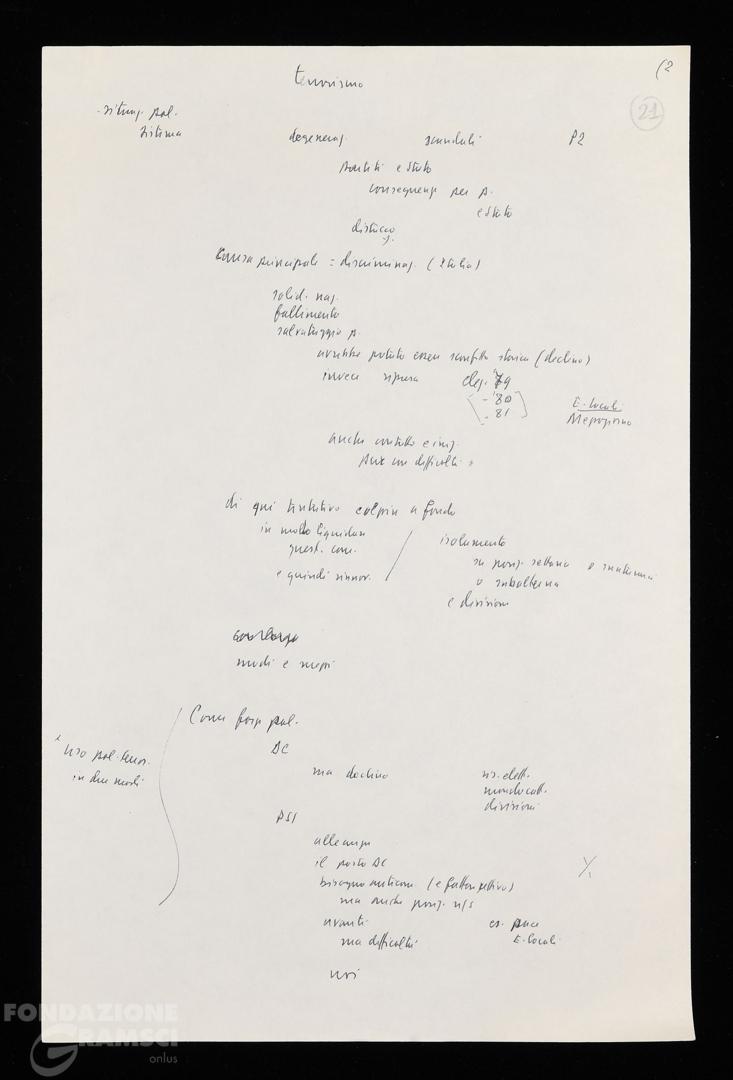 (2
terrorismo
21
- situaz. pol.
sistema degeneraz. scandali P2
partiti e Stato
conseguenze per p.
e Stato
distacco
causa principale = discriminaz. (Italia)
solid. naz.
fallimento
salvataggio p.
avrebbe potuto essere sconfitta storica (declino)
invece ripresa elez. '79
- '80 E. locali
- 81 Mezzogiorno
anche contatto e iniz.
Pur con difficoltà
di qui tentativo colpire a fondo
in modo liquidare isolamento
quest. com. su posiz. settaria o
e quindi rinnov. o subalterna
e divisioni
modi e mezzi
Come forze pol.
è uso pol. terror.
in due modi
DC
ma declino ris. elett.
mondo catt.
divisioni
PSI
alleanza
il posto DC
bisogno anticom. (e fattori positivi)
ma anche posiz. n/s
avanti es. pace
ma difficoltà E. locali
noi
FONDAZIONE
GRAMSCI
onlus